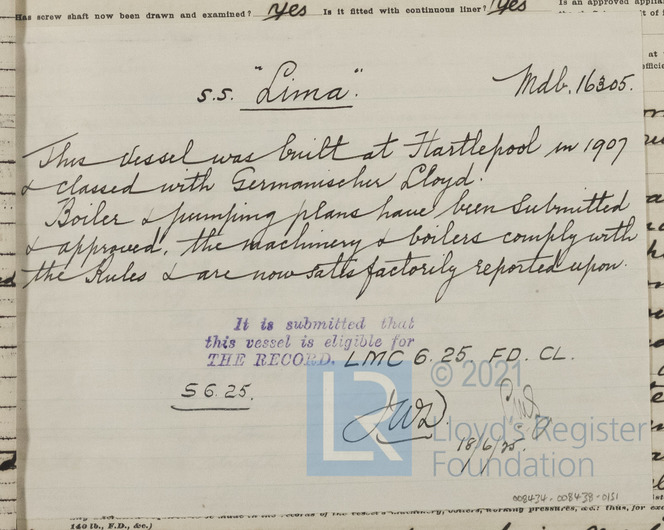 Has screw shaft now been drawn and examined? Yes Is it fitted with continuous liner? Yes Is an approved
S.S. "Lima". Mdb. 16305.
This vessel was built at Hartlepool in 1907
& classed with Germanischer Lloyd.
Boiler & pumping plans have been submitted
& approved, the machinery & boilers comply with
the Rules & are now satisfactorily reported upon.
It is submitted that
this vessel is eligible for
THE RECORD. LMC 6.25. FD. CL.
S 6.25.
JWD
18/6/25.
© 2021
LR
Lloyd's Register
Foundation
008434-008438-0151
140 lb., F.D., &c.)